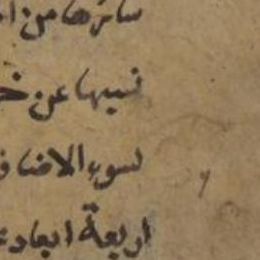 سائرها من
نسبها عن
لسوء الاضا
اربعة ابعاد